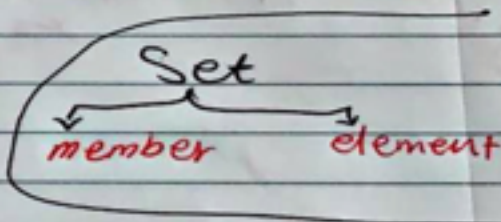 Set
member element